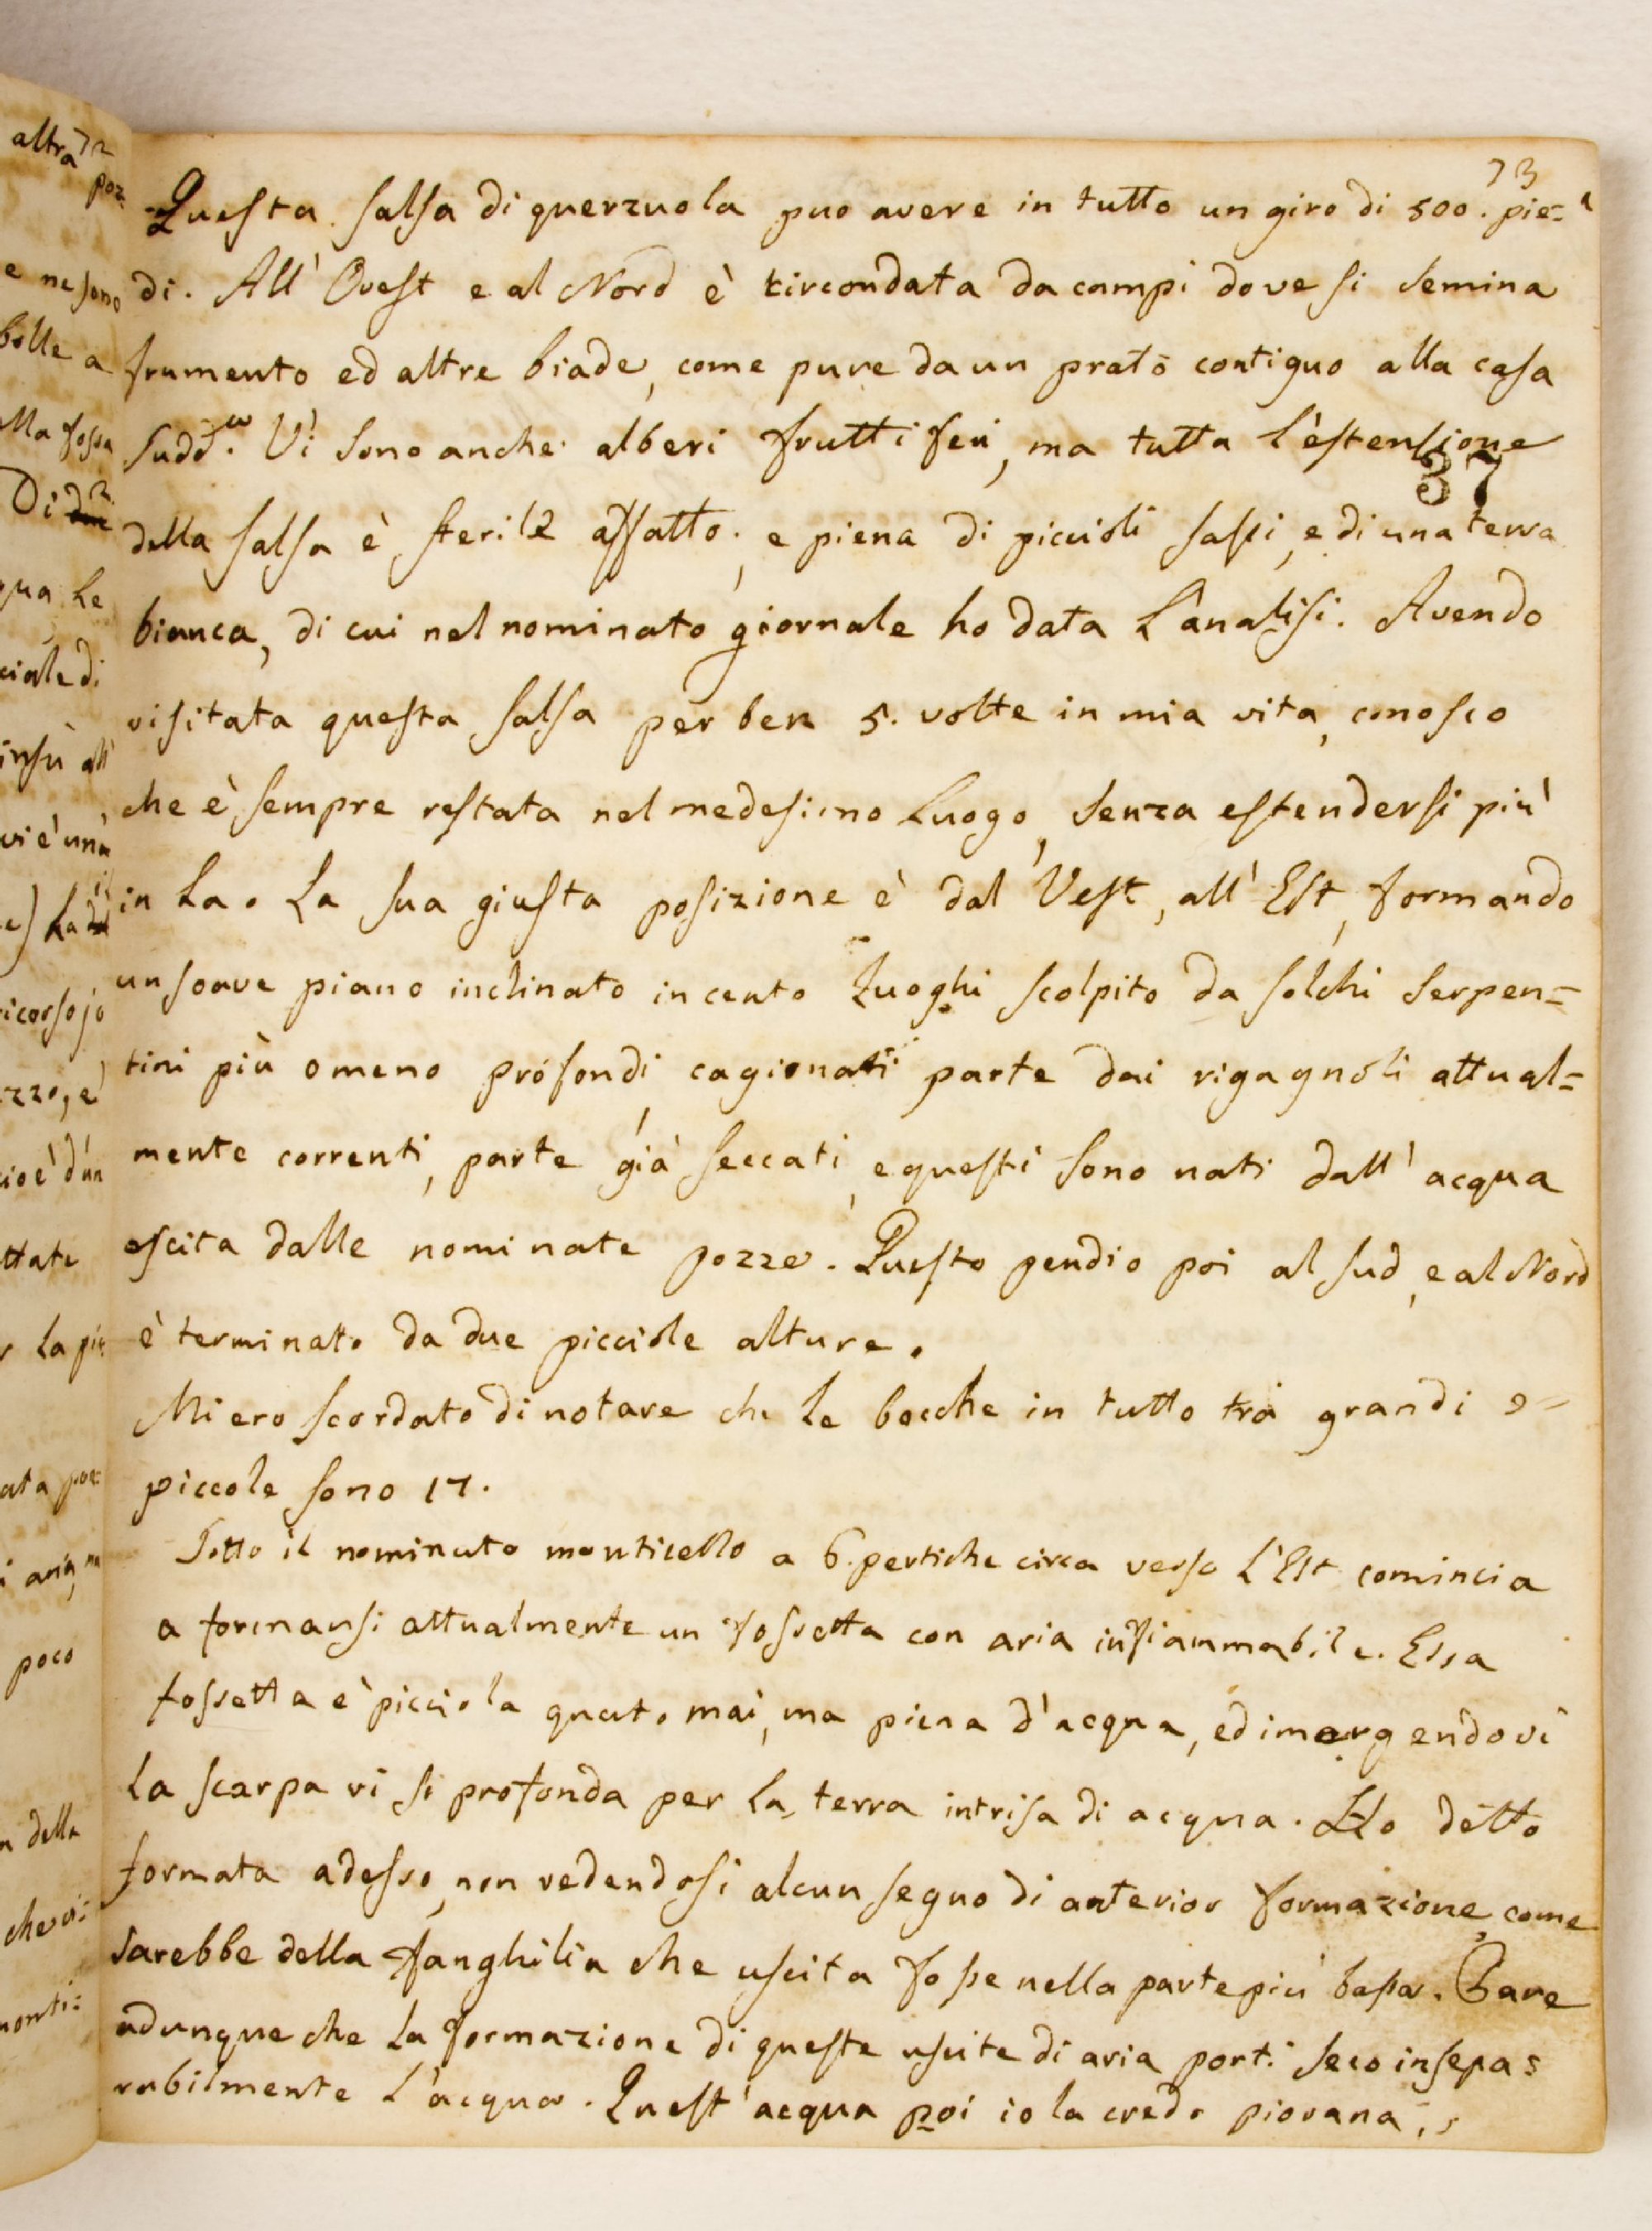 altra 72
poz:
e ne sono
bolle a
lla fossa
Di due
qua Le
ciale di
insù all'
vi è una
La
icorso jo
zzo, e
cioè d'un
ttate
La più
ata poz:
poco
della
che vi:
monti:
73
Questa salsa di querzuola puo avere in tutto un giro di 500. pie=
di. All' Ovest e al Nord è circondata da campi dove si semina
frumento ed altre biade, come pure da un prato contiguo alla casa
sudd.a Vi sono anche alberi fruttiferi, ma tutta l'estensione
37
della salsa è sterile affatto, e piena di piccioli sassi, e di una terra
bianca, di cui nel nominato giornale ho data L'analisi. Avendo
visitata questa salsa per ben 5. volte in mia vita, conosco
che è sempre restata nel medesimo Luogo, senza estendersi più
in La. La sua giusta posizione è dal Vest, all' Est, formando
un soave piano inclinato in cento Luoghi scolpito da solchi serpen=
tini più o meno profondi, cagionati parte dai rigagnoli attual=
mente correnti, parte già seccati, e questi sono nati dall' acqua
escita dalle nominate pozze. Questo pendio poi al sud, e al Nord
è terminato da due picciole alture.
Mi ero scordato di notare che Le bocche in tutto tra grandi e=
piccole sono 17.
Sotto il nominato monticello a 6. pertiche circa verso L'Est comincia
a formarsi attualmente un fossetta con aria infiammabile. Essa
fossetta è picciola quanto mai, ma piena d'acqua, ed imergendovi
La scarpa vi si profonda per La terra intrisa di acqua. Ho detto
formata adesso, non vedendosi alcun segno di anterior formazione, come
sarebbe della fanghilia che uscita fosse nella parte più bassa. Pare
adunque che La formazione di queste uscite di aria porti seco insepa=
rabilmente L'acqua. Quest' acqua poi io la credo piovana,